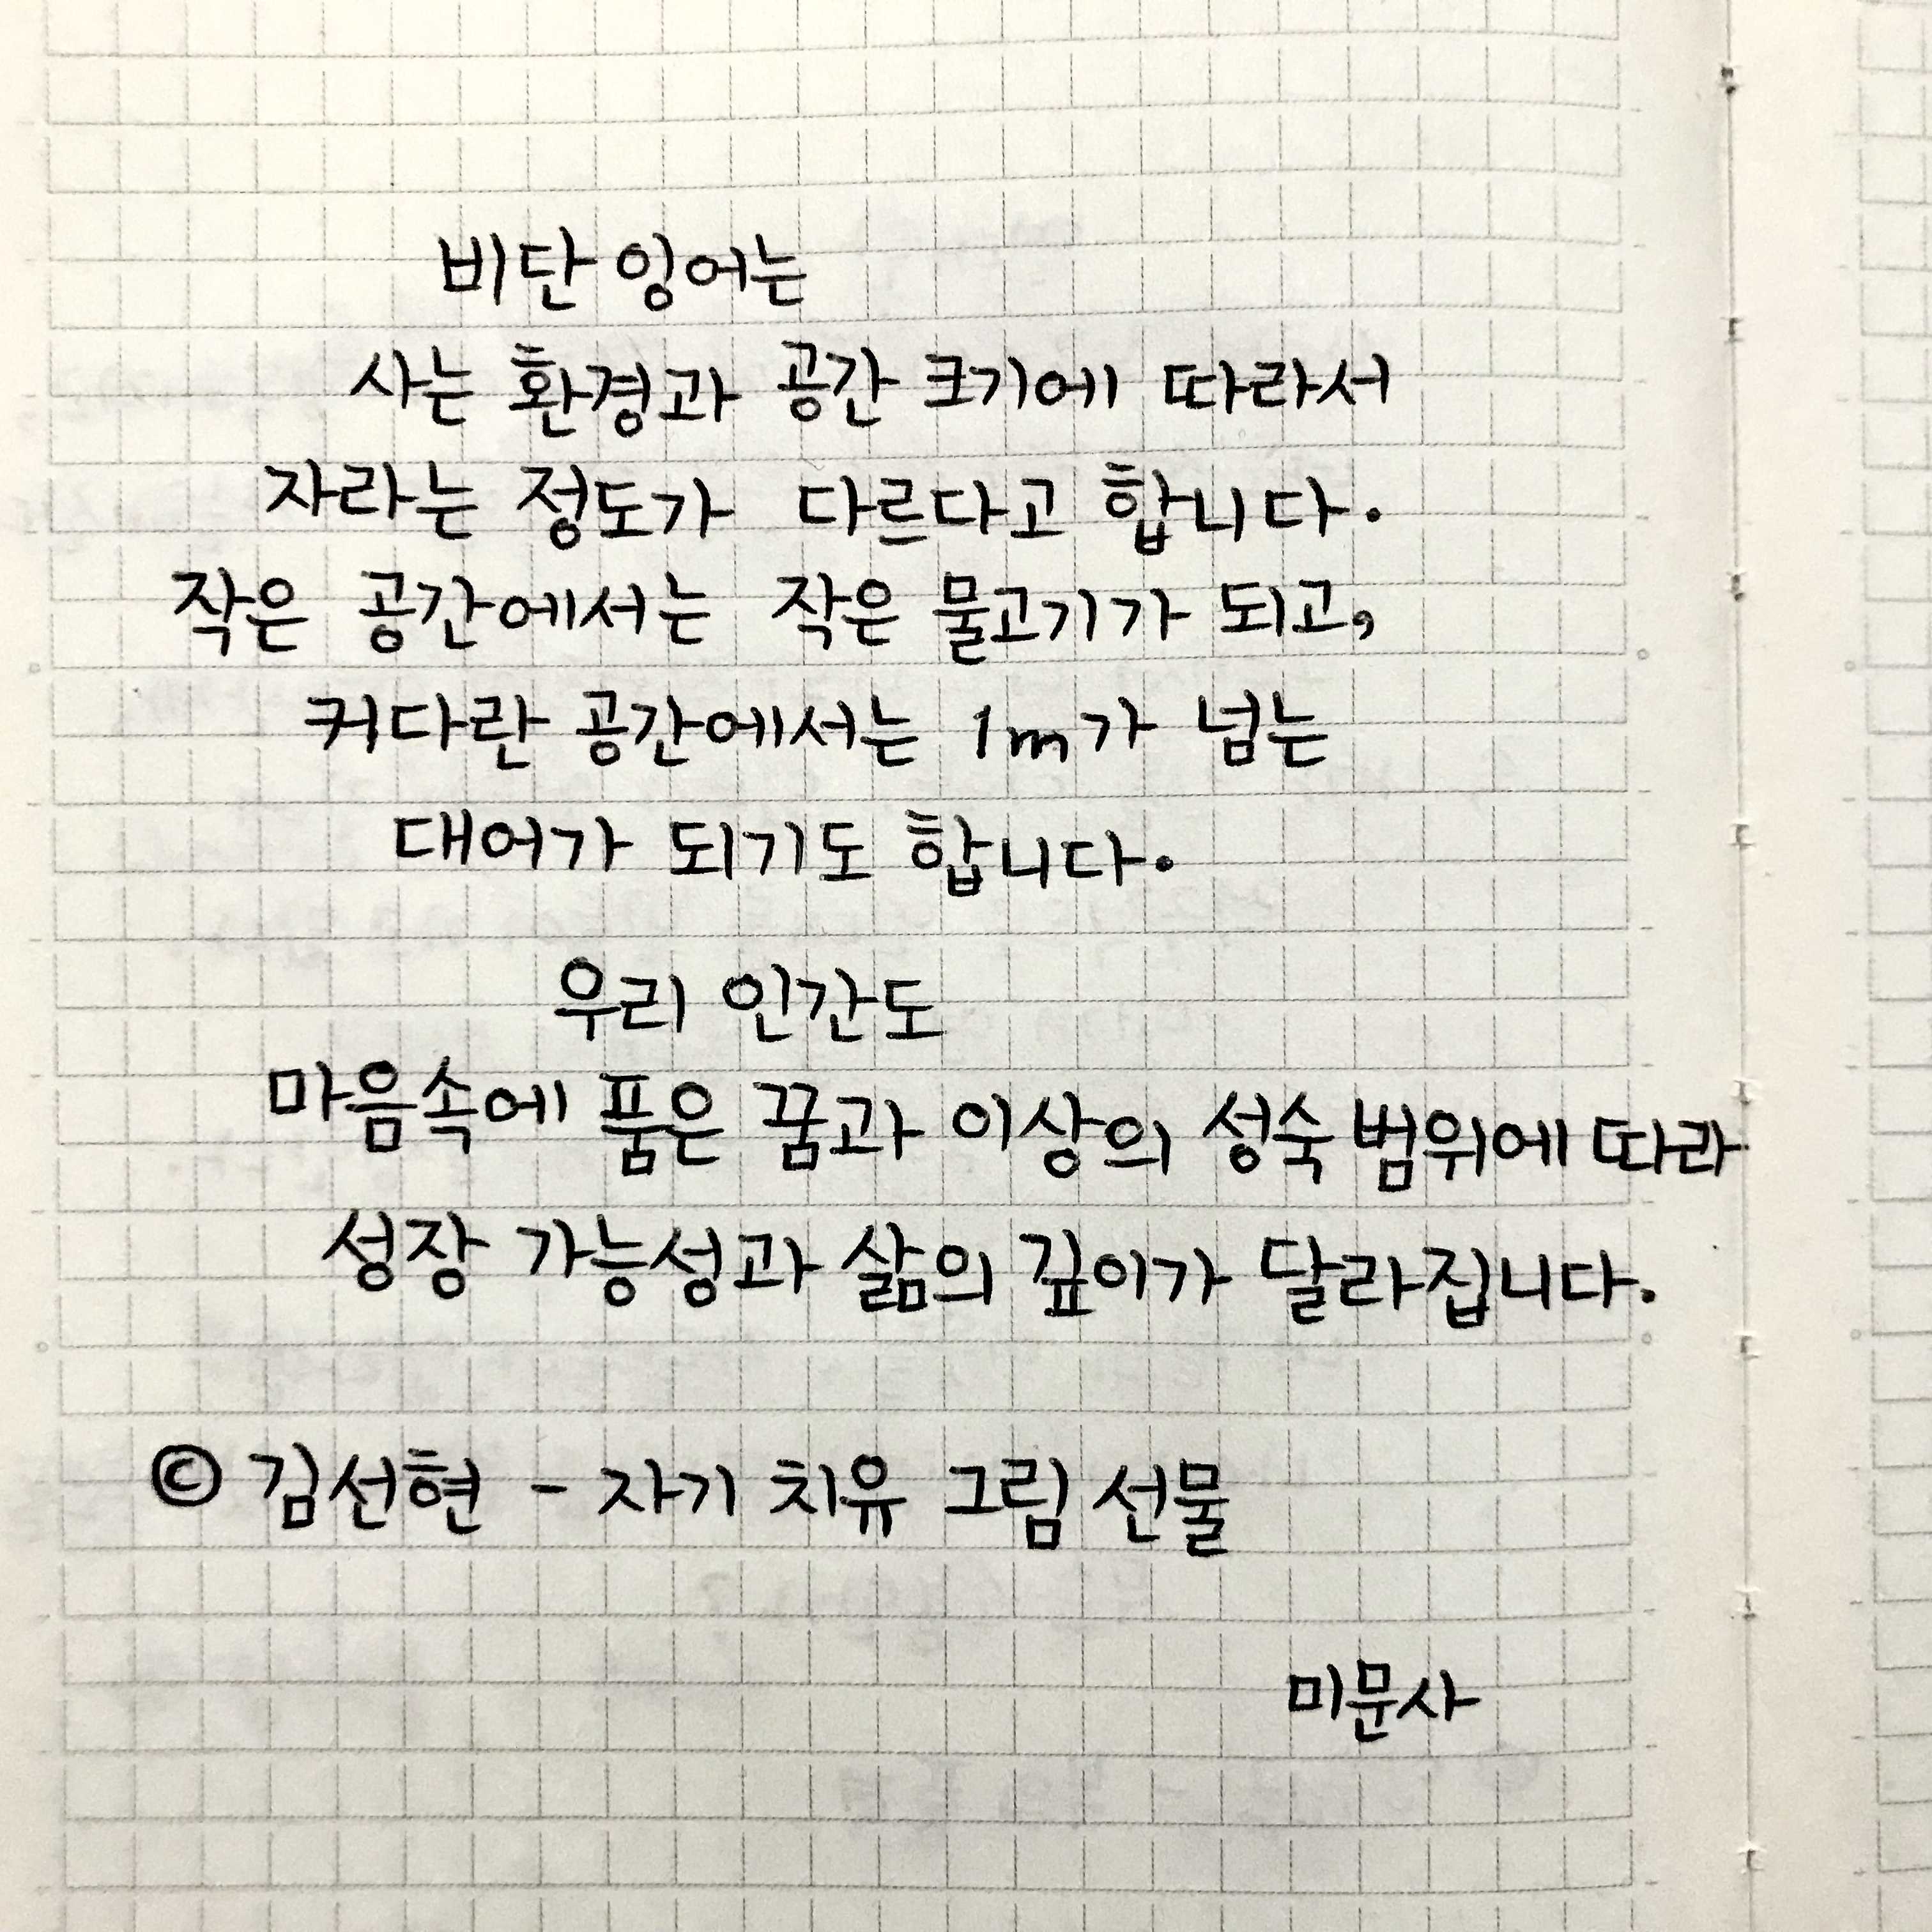 비단 잉어는
사는 환경과 공간 크기에 따라서
자라는 정도가 다르다고 합니다.
작은 공간에서는 작은 물고기가 되고,
커다란 공간에서는 1m가 넘는
대어가 되기도 합니다.
우리 인간도
마음속에 품은 꿈과 이상의 성숙 범위에 따라
성장 가능성과 삶의 깊이가 달라집니다.
© 김선현 - 자기 치유 그림 선물
미문사